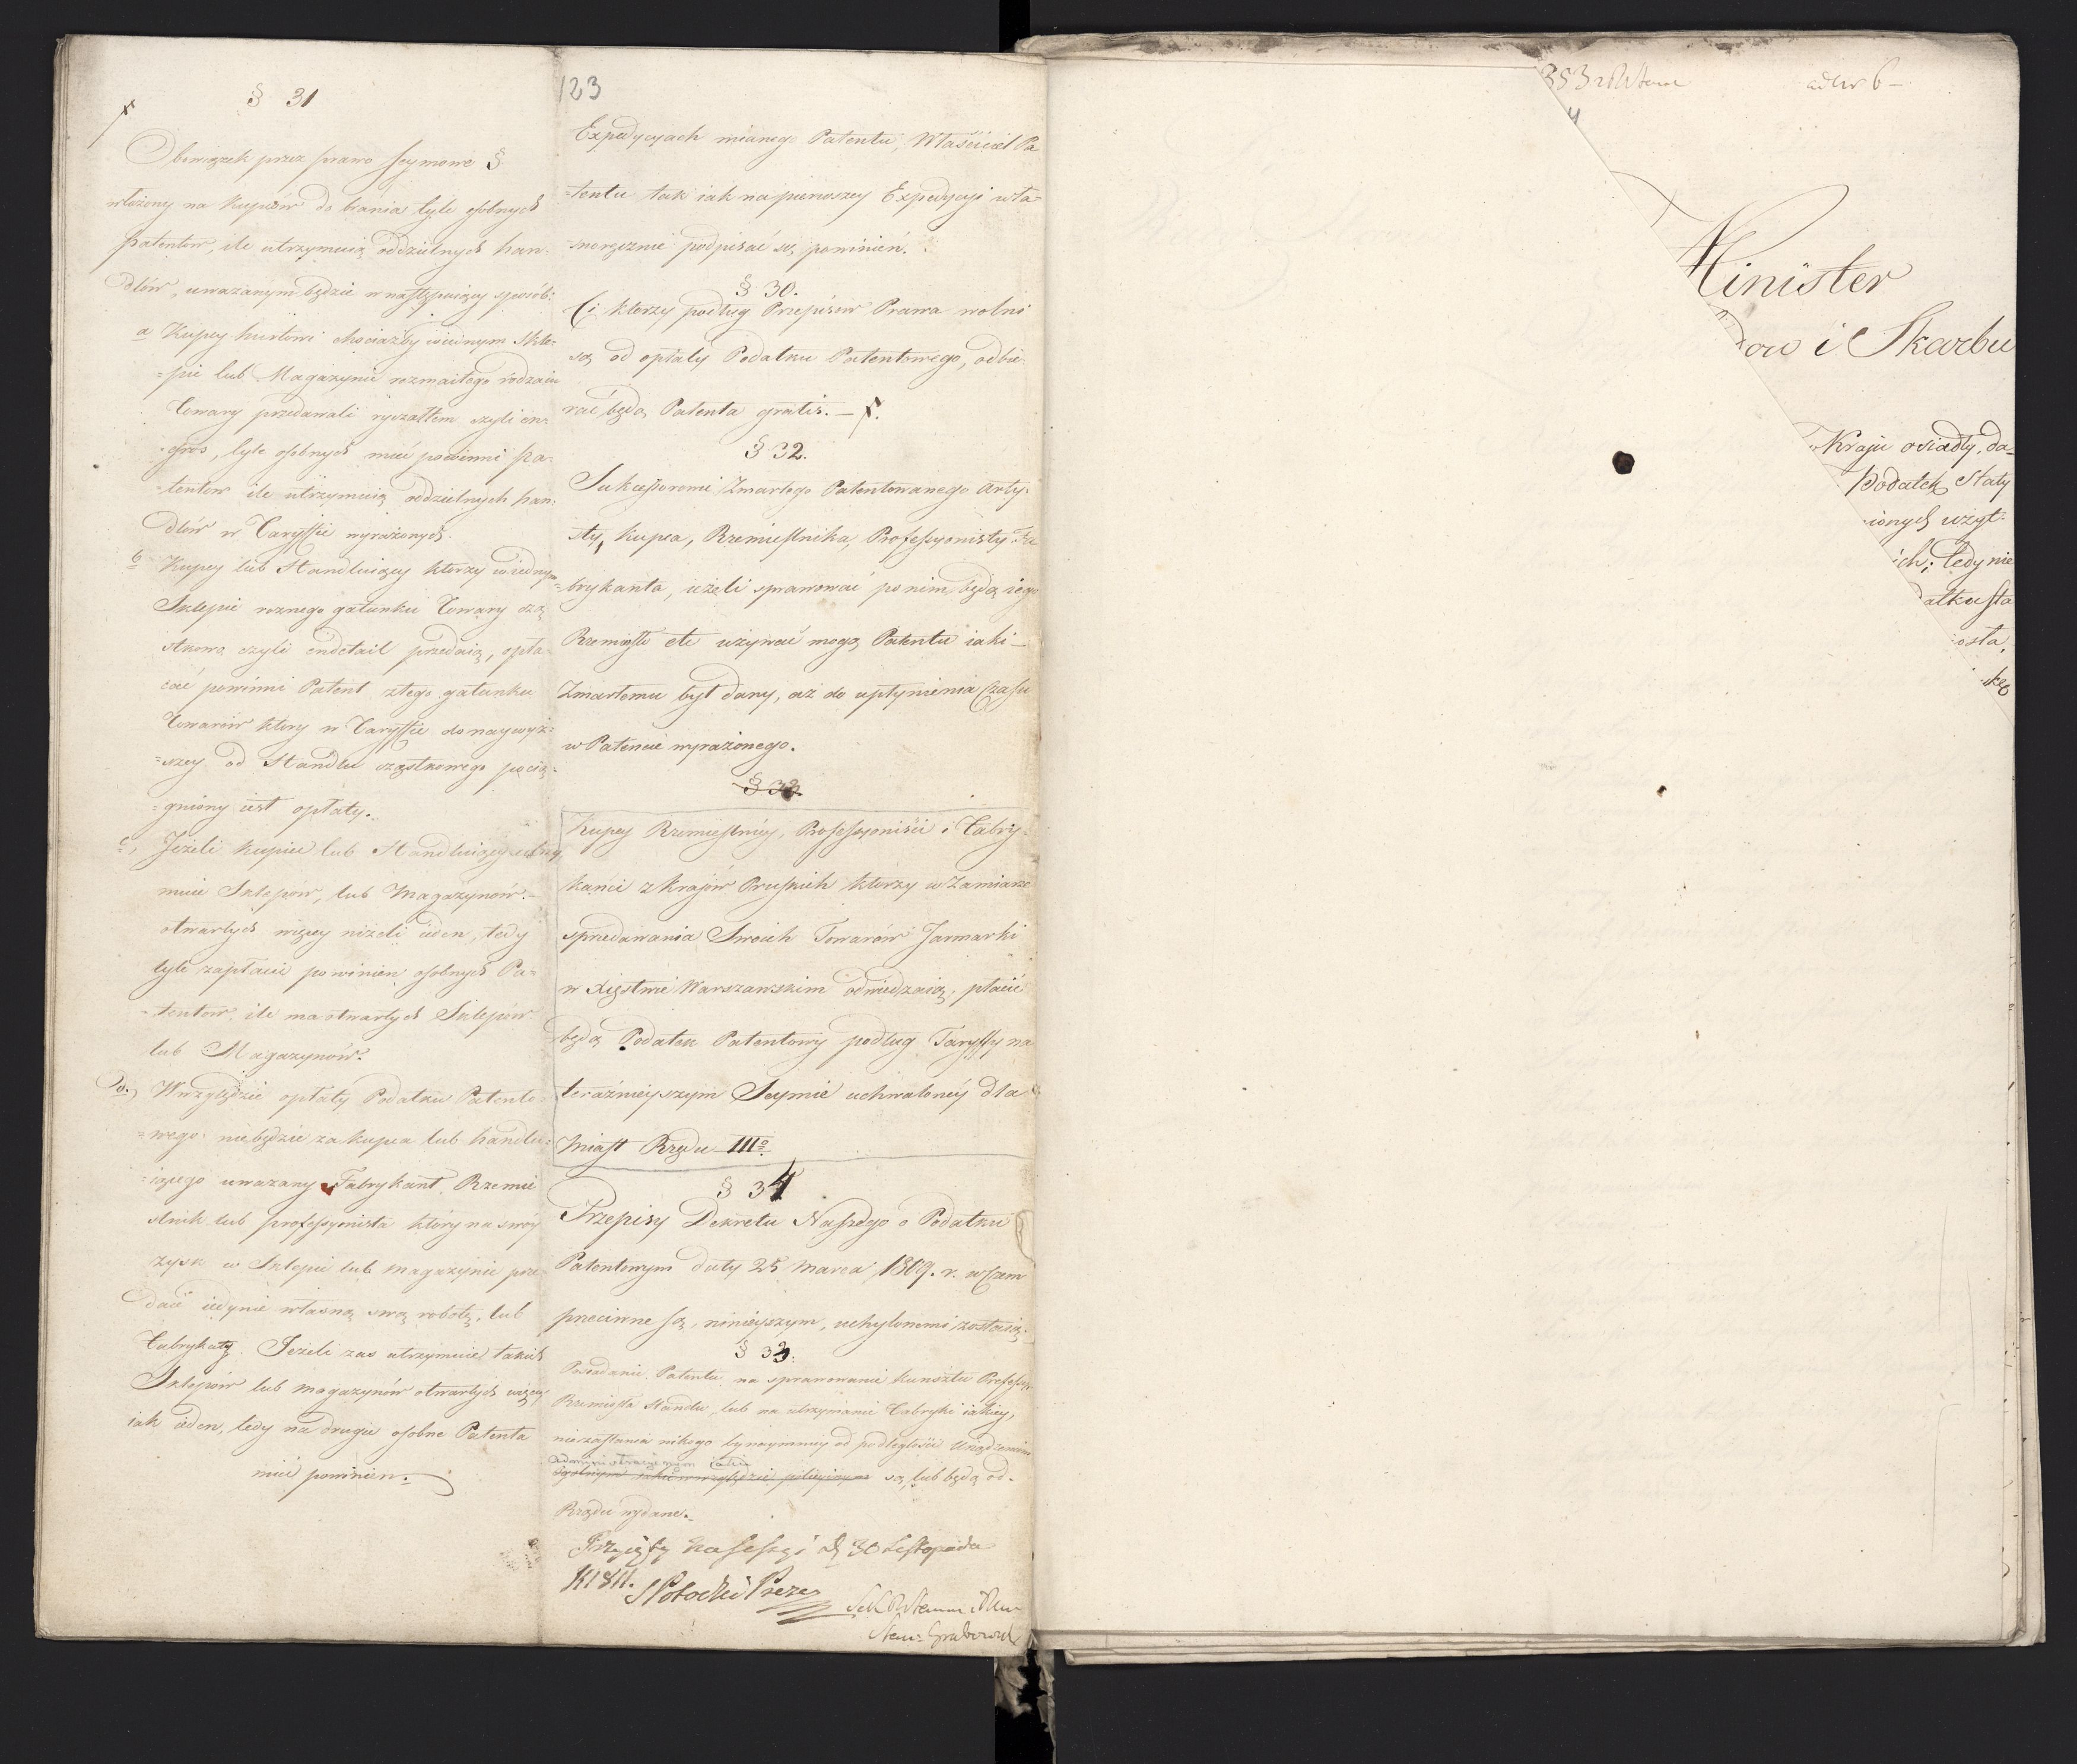 § 31
Obowiązek przez prawo Seymowe §
włożony na kupców do brania tyle osobnych
patentow, ile utrzymuią oddzielnych han-
dlów, uważanym będzie w następuiący sposób:
a Kupcy hurtowi chociażby w iednym Skle-
=pie lub Magazynie rozmaitego rodzaiu
Towary przedawali ryczałtem czyli en-
-gros, tyle osobnych mieć powinni pa-
-tentow ile utrzymuią oddzielnych han-
dlów w Taryffie wyrażonych.
b Kupcy lub Handluiący ktorzy w iednym
Sklepie roznego gatunku Towary czą-
stkowo czyli endetail przedaią, opła-
cać powinni Patent z tego gatunku
Towarów ktory w Taryffie do naywyż-
=szey od Handlu cząstkowego pocią-
=gniony iest opłaty.
c, Jeżeli kupiec lub Handluiący utrzy-
muie Sklepów, lub Magazynów
otwartych więcey niżeli ieden, tedy
tyle zapłacić powinien osobnych Pa-
-tentow, ile ma otwartych Sklepów
lub Magazynów.
d.) Względzie opłaty Podatku Patento-
=wego niebędzie za kupca lub handlu-
-iącego uważany Fabrykant Rzemie
slnik lub professyonista ktòry na swòy
zysk w Sklepie lub magazynie prze
daie iedynie własną swą robotę, lub
Fabrykaty. Jeżeli zas utrzymuie takich
Sklepów lub magazynów otwartych więcey
iak ieden, tedy na drugie osobne Patenta
mieć powinien.
123
Expedycyach mianego Patentu, Właściciel Pa
-tentu tak iak na pierwszey Expedycyi wła
snoręcznie podpisać się powinien.
§ 30.
Ci ktorzy podług Przepisow Prawa wolni
są od opłaty Podatku Patentowego, odbie-
rać będą Patenta gratis. —
§ 32.
Sukcessorowie Zmarłego Patentowanego Arty-
sty, kupca, Rzemieslnika, Professyonisty Fa
-brykanta, ieżeli sprawować po nim będą iego
Rzemiosło etc używać mogą Patentu iaki —
Zmarłemu był dany, aż do upłynienia Czasu
w Patencie wyrażonego.
§ 33.
Kupcy Rzemieslnicy, Professyoniści i Fabry-
kanci z krajów Pruskich ktorzy w Zamiarze
sprzedawania Swoich Towarów Jarmarki
w Xięstwie Warszawskim odwiedzaią, płacić
będą Podatek Patentowy podług Taryffy na
teraźnieyszym Seymie uchwaloney dla
Miast Rzędu IIIº.
§ 34
Przepisy Dekretu Naszego o Podatku
Patentowym daty 25 Marca 1809. r. w Czem
przeciwne są, ninieyszym, uchylonemi zostaią.
§ 33.
Posiadanie Patentu na sprawowanie kunsztu Professyi
Rzemiosła Handlu, lub na utrzymanie Fabryki iakiey,
niezasłania nikogo bynaymniey od podległości Urządzeniom
Administracyinym iakie
są, lub będą od
Rządu wydane.
Przyięty na Sessyi d. 30 Listopada
R 1811. S Potocki Prezes
Grabowski
ad Nr 6 —
Minister
ow i Skarbu
Kraju osiadły, da=
Podatek Stały
ionych użyt-
ich; tedy nie
datku sta
iosła,
kę